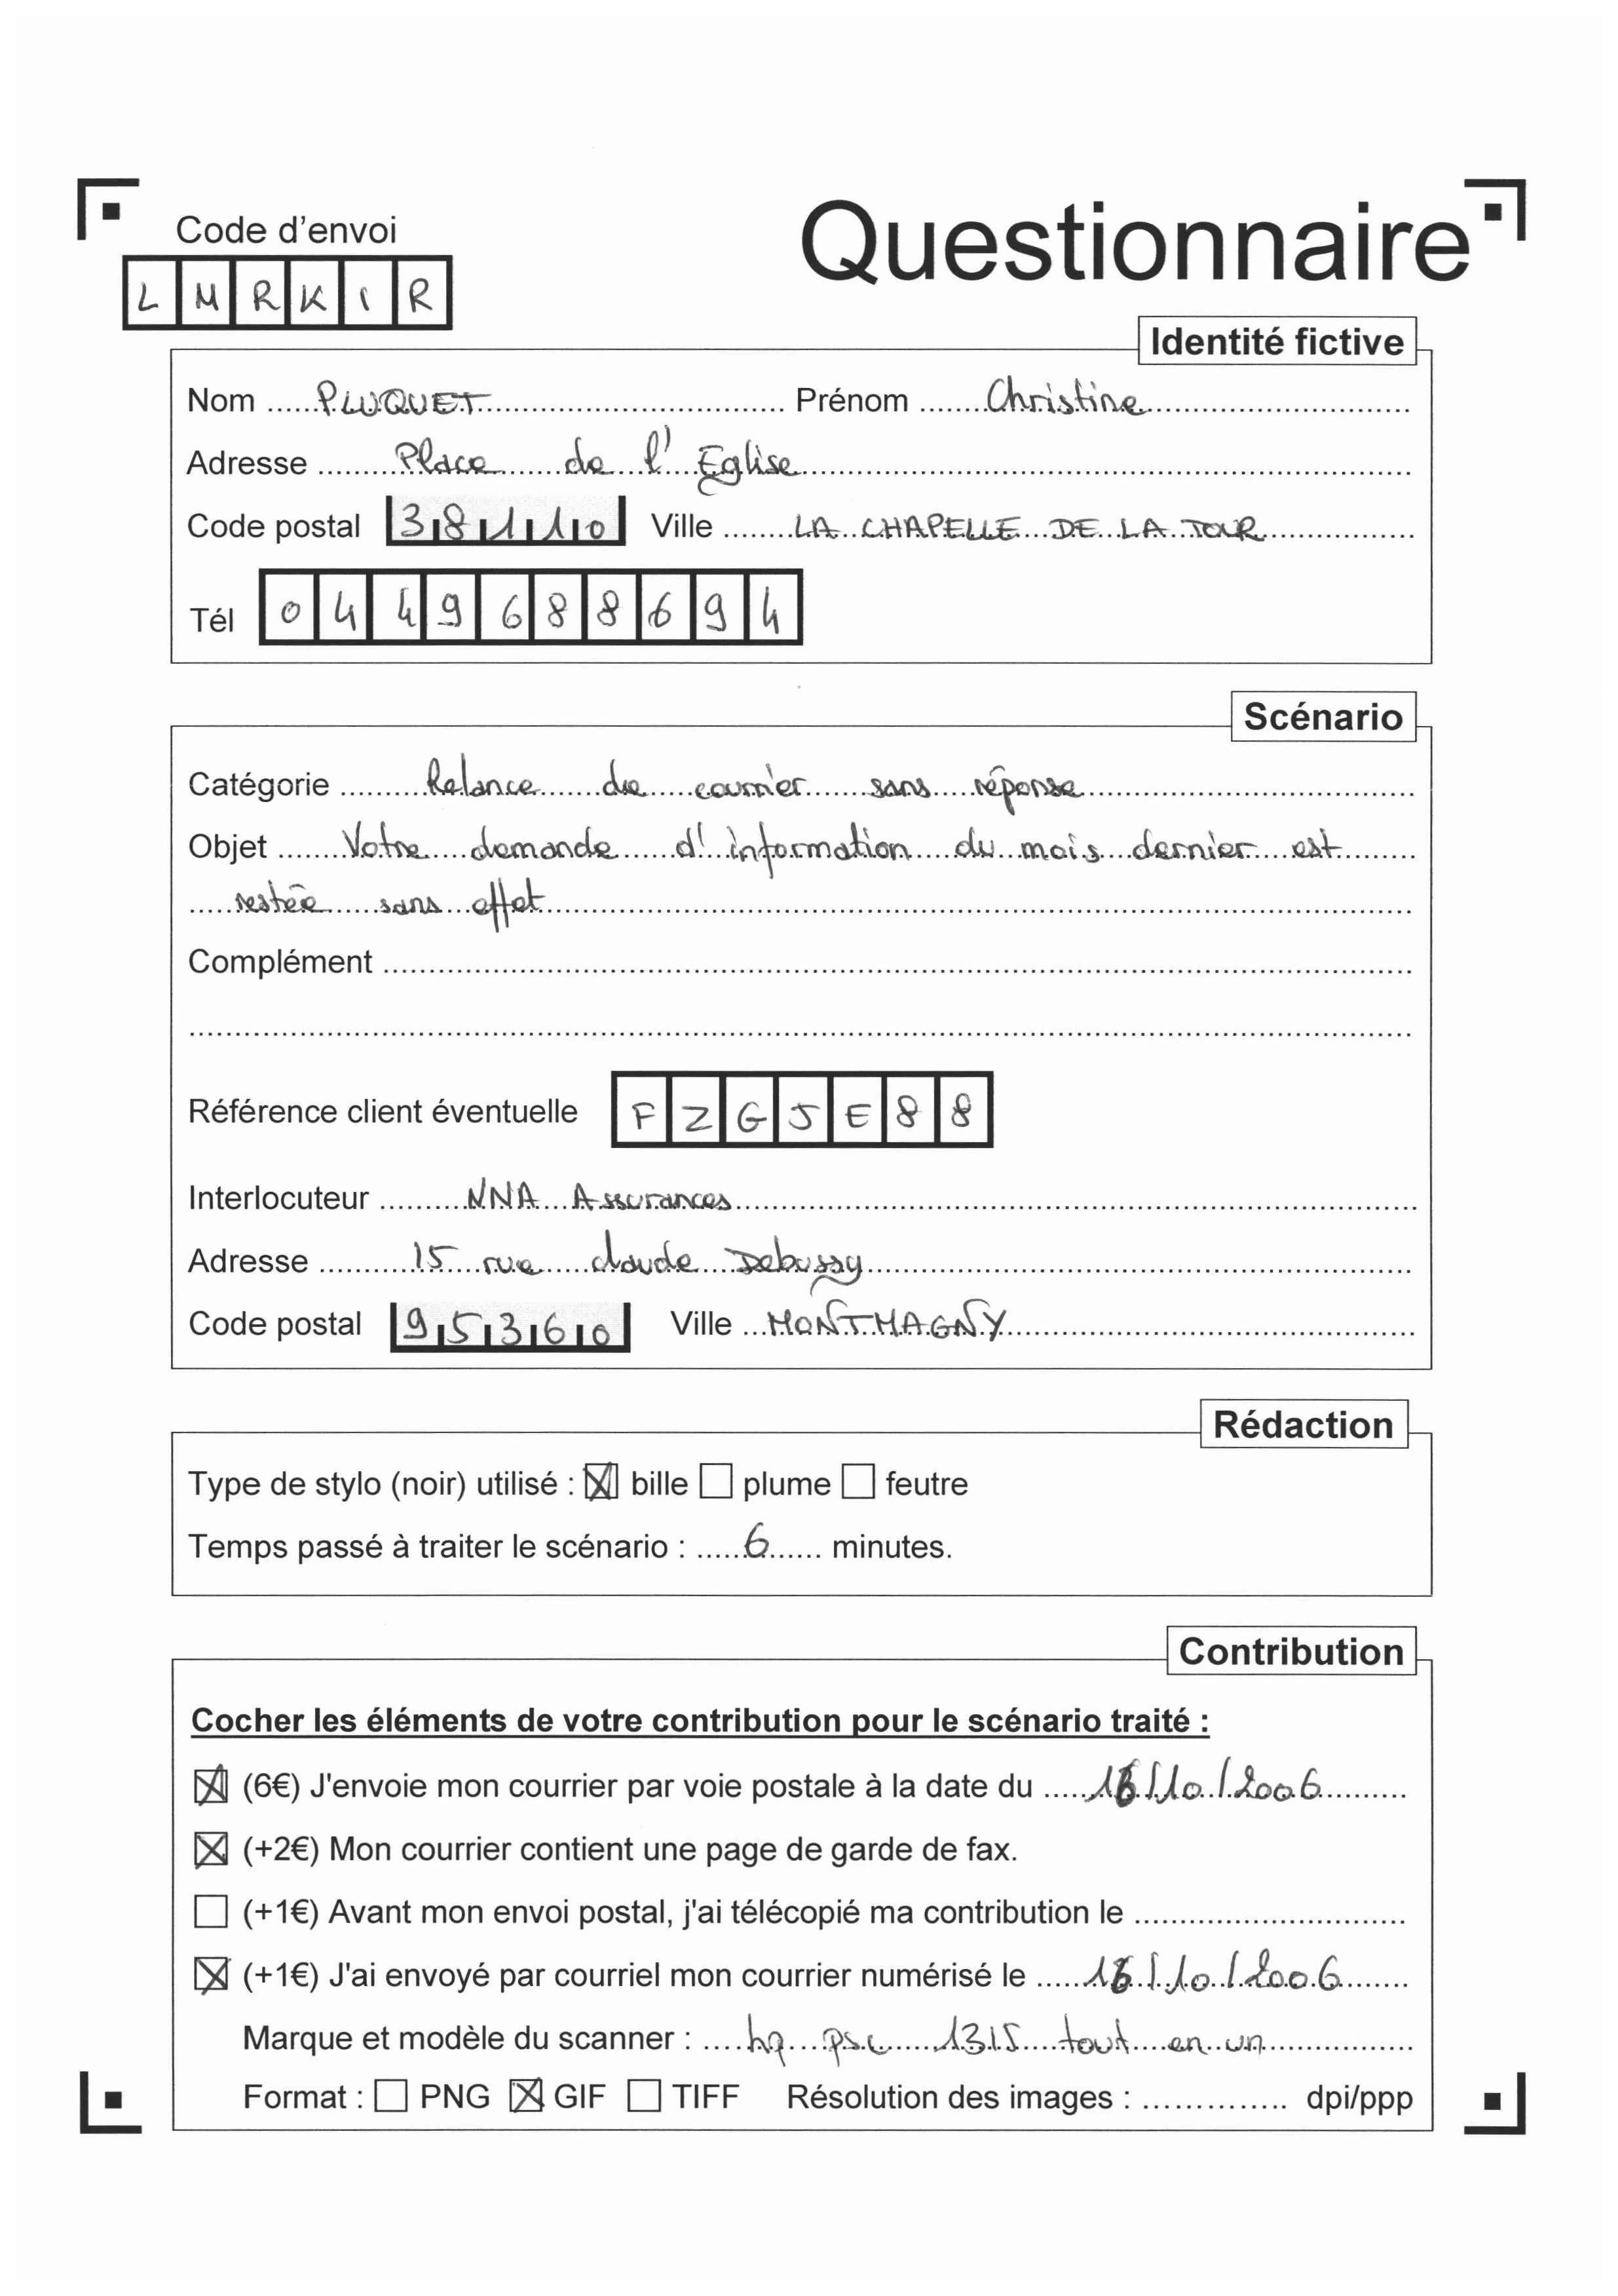 Code d'envoi
Questionnaire
L M R K I R
Identité fictive
Nom ...... PLUQUET ...... Prénom ...... Christine ......
Adresse ...... Place de l'Eglise ......
Code postal 38110 Ville ...... LA CHAPELLE DE LA TOUR ......
Tél 0 4 4 9 6 8 8 6 9 4
Scénario
Catégorie ...... Relance de courrier sans réponse ......
Objet ...... Votre demande d'information du mois dernier est ......
...... restée sans effet ......
Complément ......
Référence client éventuelle F Z G J E 8 8
Interlocuteur ...... NNA Assurances ......
Adresse ...... 15 rue claude Debussy ......
Code postal 95360 Ville ... MONTMAGNY ......
Rédaction
Type de stylo (noir) utilisé : ☒ bille ☐ plume ☐ feutre
Temps passé à traiter le scénario : ...... 6 ...... minutes.
Contribution
Cocher les éléments de votre contribution pour le scénario traité :
☒ (6€) J'envoie mon courrier par voie postale à la date du ...... 16/10/2006 ......
☒ (+2€) Mon courrier contient une page de garde de fax.
☐ (+1€) Avant mon envoi postal, j'ai télécopié ma contribution le ......
☒ (+1€) J'ai envoyé par courriel mon courrier numérisé le ...... 16/10/2006 ......
Marque et modèle du scanner : ...... hp psc 1315 tout en un ......
Format : ☐ PNG ☒ GIF ☐ TIFF Résolution des images : ...... dpi/ppp